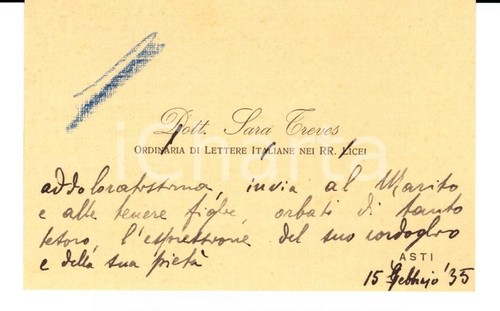 Dott. Sara Treves
ORDINARIA DI LETTERE ITALIANE NEI RR. LICEI
addoloratissima, invia al Marito
e alle tenere figlie, orbati di tanto
tesoro, l'espressione del suo cordoglio
e della sua pietà
ASTI
15 febbraio '35
iCharta